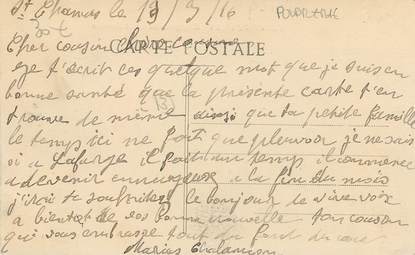 St Chamas le 19/3/16
POUDRERIE
30 €
CARTE POSTALE
Cher cousin
je t'écrit ces quelque mot que je suis en
bonne santé que la présente carte t'en
trouve de même ainsi que ta petite famille
le temps ici ne fait que pleuvoir je ne sais
si a Lafarge il fait du temp il commence
a devenir ennuyeuse a la fin du mois
j'irai te souhaiter le bonjour de vive voix
a bientôt de vos bonne nouvelle ton cousin
qui vous embrasse tout du fond du cœur
Marius Chalancon
13